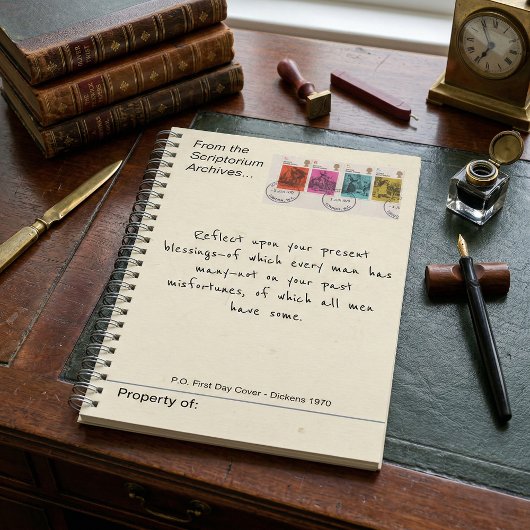 From the
Scriptorium
Archives...
Reflect upon your present
blessings—of which every man has
many—not on your past
misfortunes, of which all men
have some.
P.O. First Day Cover - Dickens 1970
Property of: